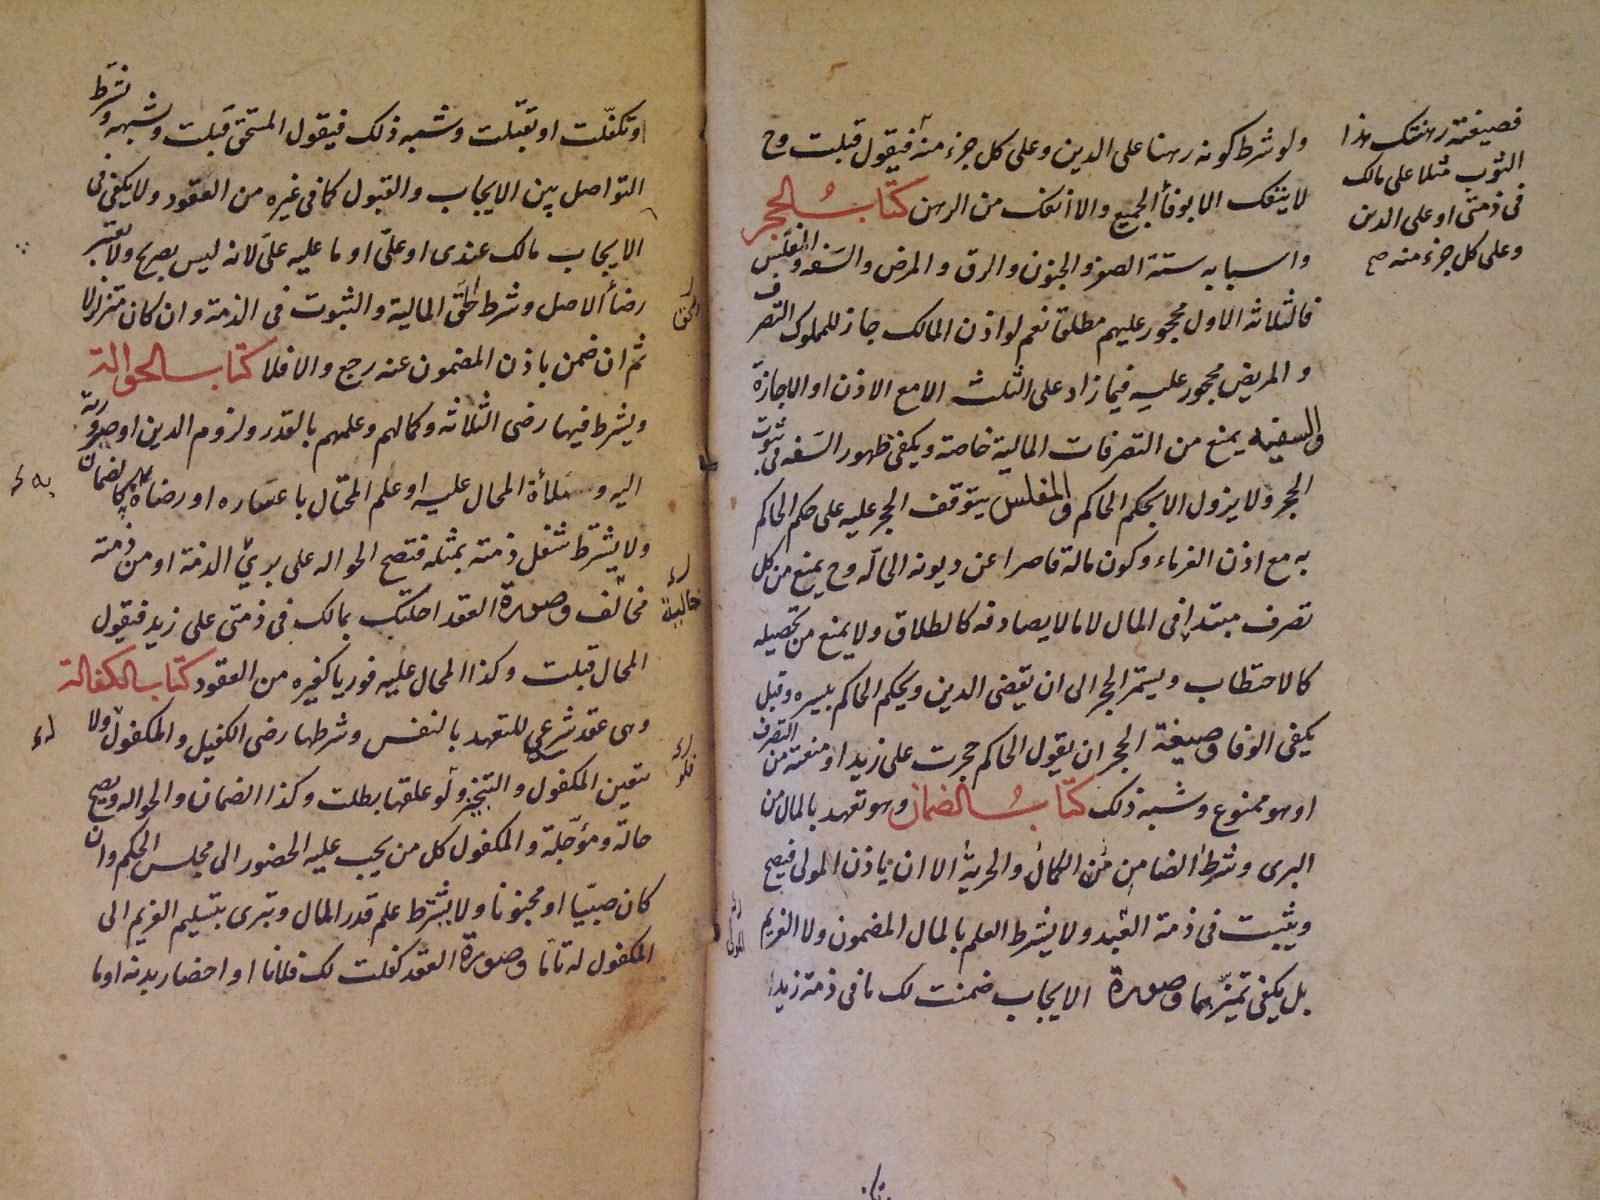 ولو شرط كونه رهنا على الدين وعلى كل جزء منه فيقول قبلت وح
لا ينفك الا بوفاء الجميع والا انفك من الرهن كتاب الحجر
واسبابه ستة الصغر والجنون والرق والمرض والسفه والفلس
فالثلاثه الاول محجور عليهم مطلقا نعم لو اذن المالك جاز للمملوك التصرف
والمريض محجور عليه فيما زاد على الثلث الا مع الاذن او الاجازة
والسفيه يمنع من التصرفات المالية خاصة ويكفى ظهور السفه فى ثبوت
الحجر ولا يزول الا بحكم الحاكم والمفلس يتوقف الحجر عليه على حكم الحاكم
به مع اذن الغرماء وكون ماله قاصرا عن ديونه الحالّه وح يمنع من كل
تصرف مبتدا فى المال لا ما لا يصادفه كالطلاق ولا يمنع من تحصيله
كالاحتطاب ويستمر الحجر الى ان يقضى الدين ويحكم الحاكم بيسره وقيل
يكفى الوفا وصيغة الحجر ان يقول الحاكم حجرت على زيد او منعته من التصرف
او هو ممنوع وشبه ذلك كتاب الضمان وهو تعهد بالمال من
البرى وشرط الضامن الكمال والحرية الا ان ياذن المولى فيصح
ويثبت فى ذمة العبد ولا يشرط العلم بالمال المضمون ولا الغريم
بل يكفى تميّزهما وصورة الايجاب ضمنت لك ما فى ذمة زيد
فصيغته رهنتك هذا
الثوب مثلا على مالك
فى ذمتى او على الدين
وعلى كل جزء منه صح
او تكفّلت او تقبّلت وشبه ذلك فيقول المستحق قبلت وشبهه وشرط
التواصل بين الايجاب والقبول كما فى غيره من العقود ولا يكفى فى
الايجاب مالك عندى او علىّ او ما عليه علىّ لانه ليس بصريح ولا يعتبر
رضاء الاصل وشرط الحق المالية والثبوت فى الذمة وان كان متزلزلا
ثم ان ضمن باذن المضمون عنه رجع والا فلا كتاب الحوالة
ويشرط فيها رضى الثلاثه وكمالهم وعلمهم بالقدر ولزوم الدين او صيرورته
اليه وملأة المحال عليه او علم المحتال باعساره او رضاه به كالضمان
ولا يشترط شغل ذمته بمثله فتصح الحواله على برئ الذمة او من ذمته
مخالف وصورة العقد احلتك بمالك فى ذمتى على زيد فيقول
المحال قبلت وكذا المحال عليه فوريا كغيره من العقود كتاب الكفالة
وهى عقد شرعى للتعهد بالنفس وشرطها رضى الكفيل والمكفول ولا
تعين المكفول والتنجيز ولو علقها بطلت وكذا الضمان والحواله ويصح
حالّة ومؤجّلة والمكفول كل من يجب عليه الحضور الى مجلس الحكم وان
كان صبيّا او مجنونا ولا يشترط علم قدر المال ويبرى بتسليم الغريم الى
المكفول له تامّا وصورة العقد كفلت لك فلانا او احضار بدنه او ما